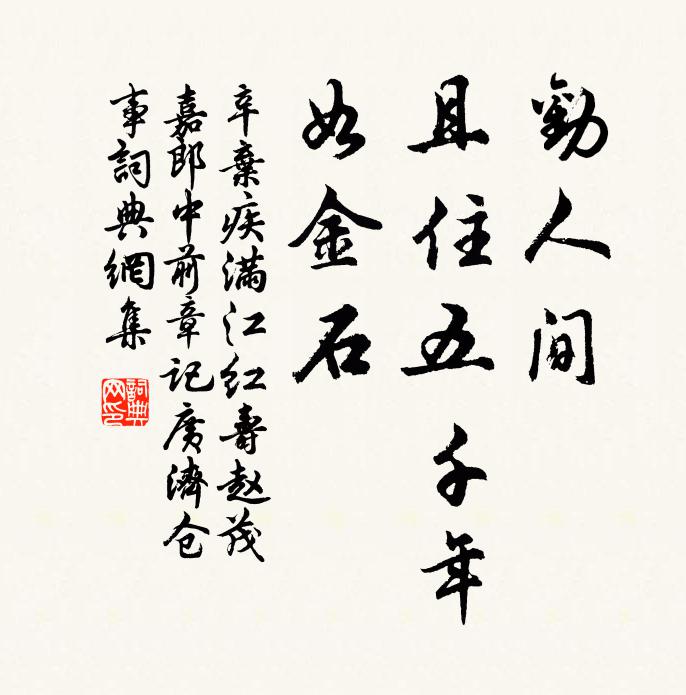 勸人间
且住五千年
如金石
辛棄疾满江红壽赵茂
嘉郎中前章记廣濟仓
事詞典網集
詞典网印